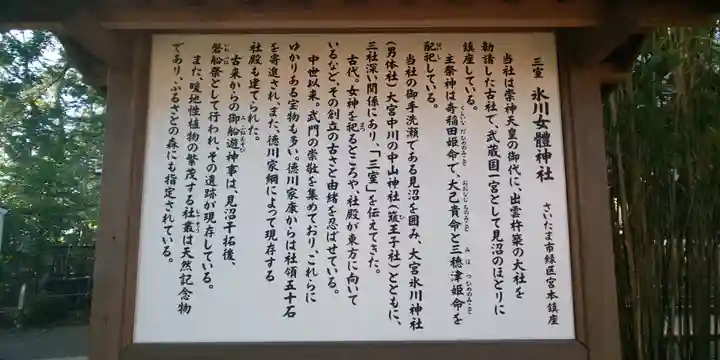 三室　氷川女體神社
さいたま市緑区宮本鎮座
当社は崇神天皇の御代に、出雲杵築の大社を
勧請した古社で、武蔵国一宮として見沼のほとりに
鎮座している。
主祭神は奇稲田姫命で、大己貴命と三穂津姫命を
配祀している。
当社の御手洗瀬である見沼を囲み、大宮氷川神社
（男体社）大宮中川の中山神社（簸王子社）とともに、
三社深い関係にあり、「三室」を伝えてきた。
古代。女神を祀るところや、社殿が東方に向いて
いるなど、その創立の古さと由緒を忍ばせている。
中世以来。武門の崇敬を集めており、これらに
ゆかりある宝物も多い。徳川家康からは社領五十石
を寄進され、また、徳川家綱によって現存する
社殿も建てられた。
古来からの御船遊神事は、見沼干拓後、
磐船祭として行われ、その遺跡が現存している。
また、暖地性植物の繁茂する社叢は天然記念物
であり、ふるさとの森にも指定されている。